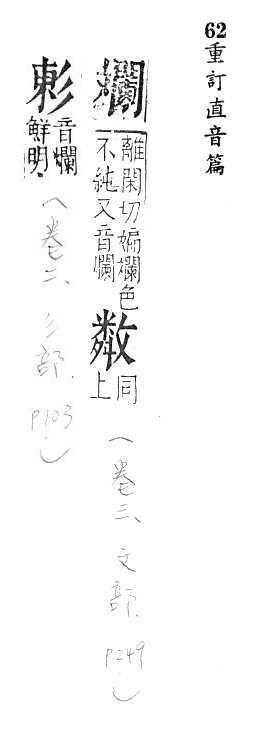 62重訂直音篇
斕
離閑切斒斕色
不純又音爛
斴
同
上
(卷三、文部、p249)
音爛
鮮明
(卷二、彡部、p103)